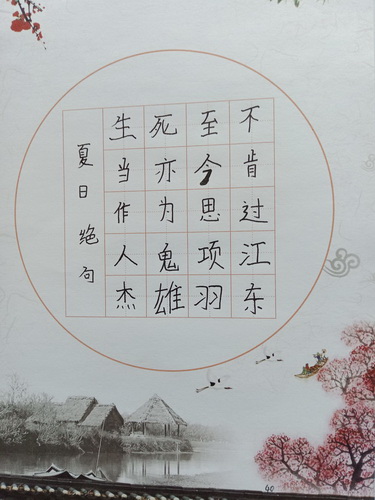 夏日绝句
生当作人杰
死亦为鬼雄
至今思项羽
不肯过江东
60